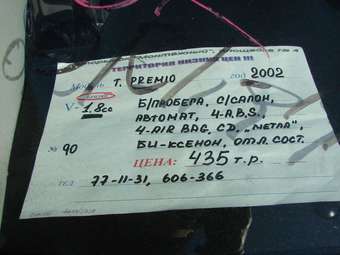 ТЕРРИТОРИЯ НИЗКИХ ЦЕН !!!
Модель T. PREMIO год 2002
V- 1.8cc Б/ПРОБЕГА, С/САЛОН,
АВТОМАТ, 4-A.B.S.
4-AIR BAG, CD, „МЕТАЛ",
№ 90 БИ-КСЕНОН, ОТЛ. СОСТ.
ЦЕНА: 435 Т.Р.
тел 77-11-31, 606-366